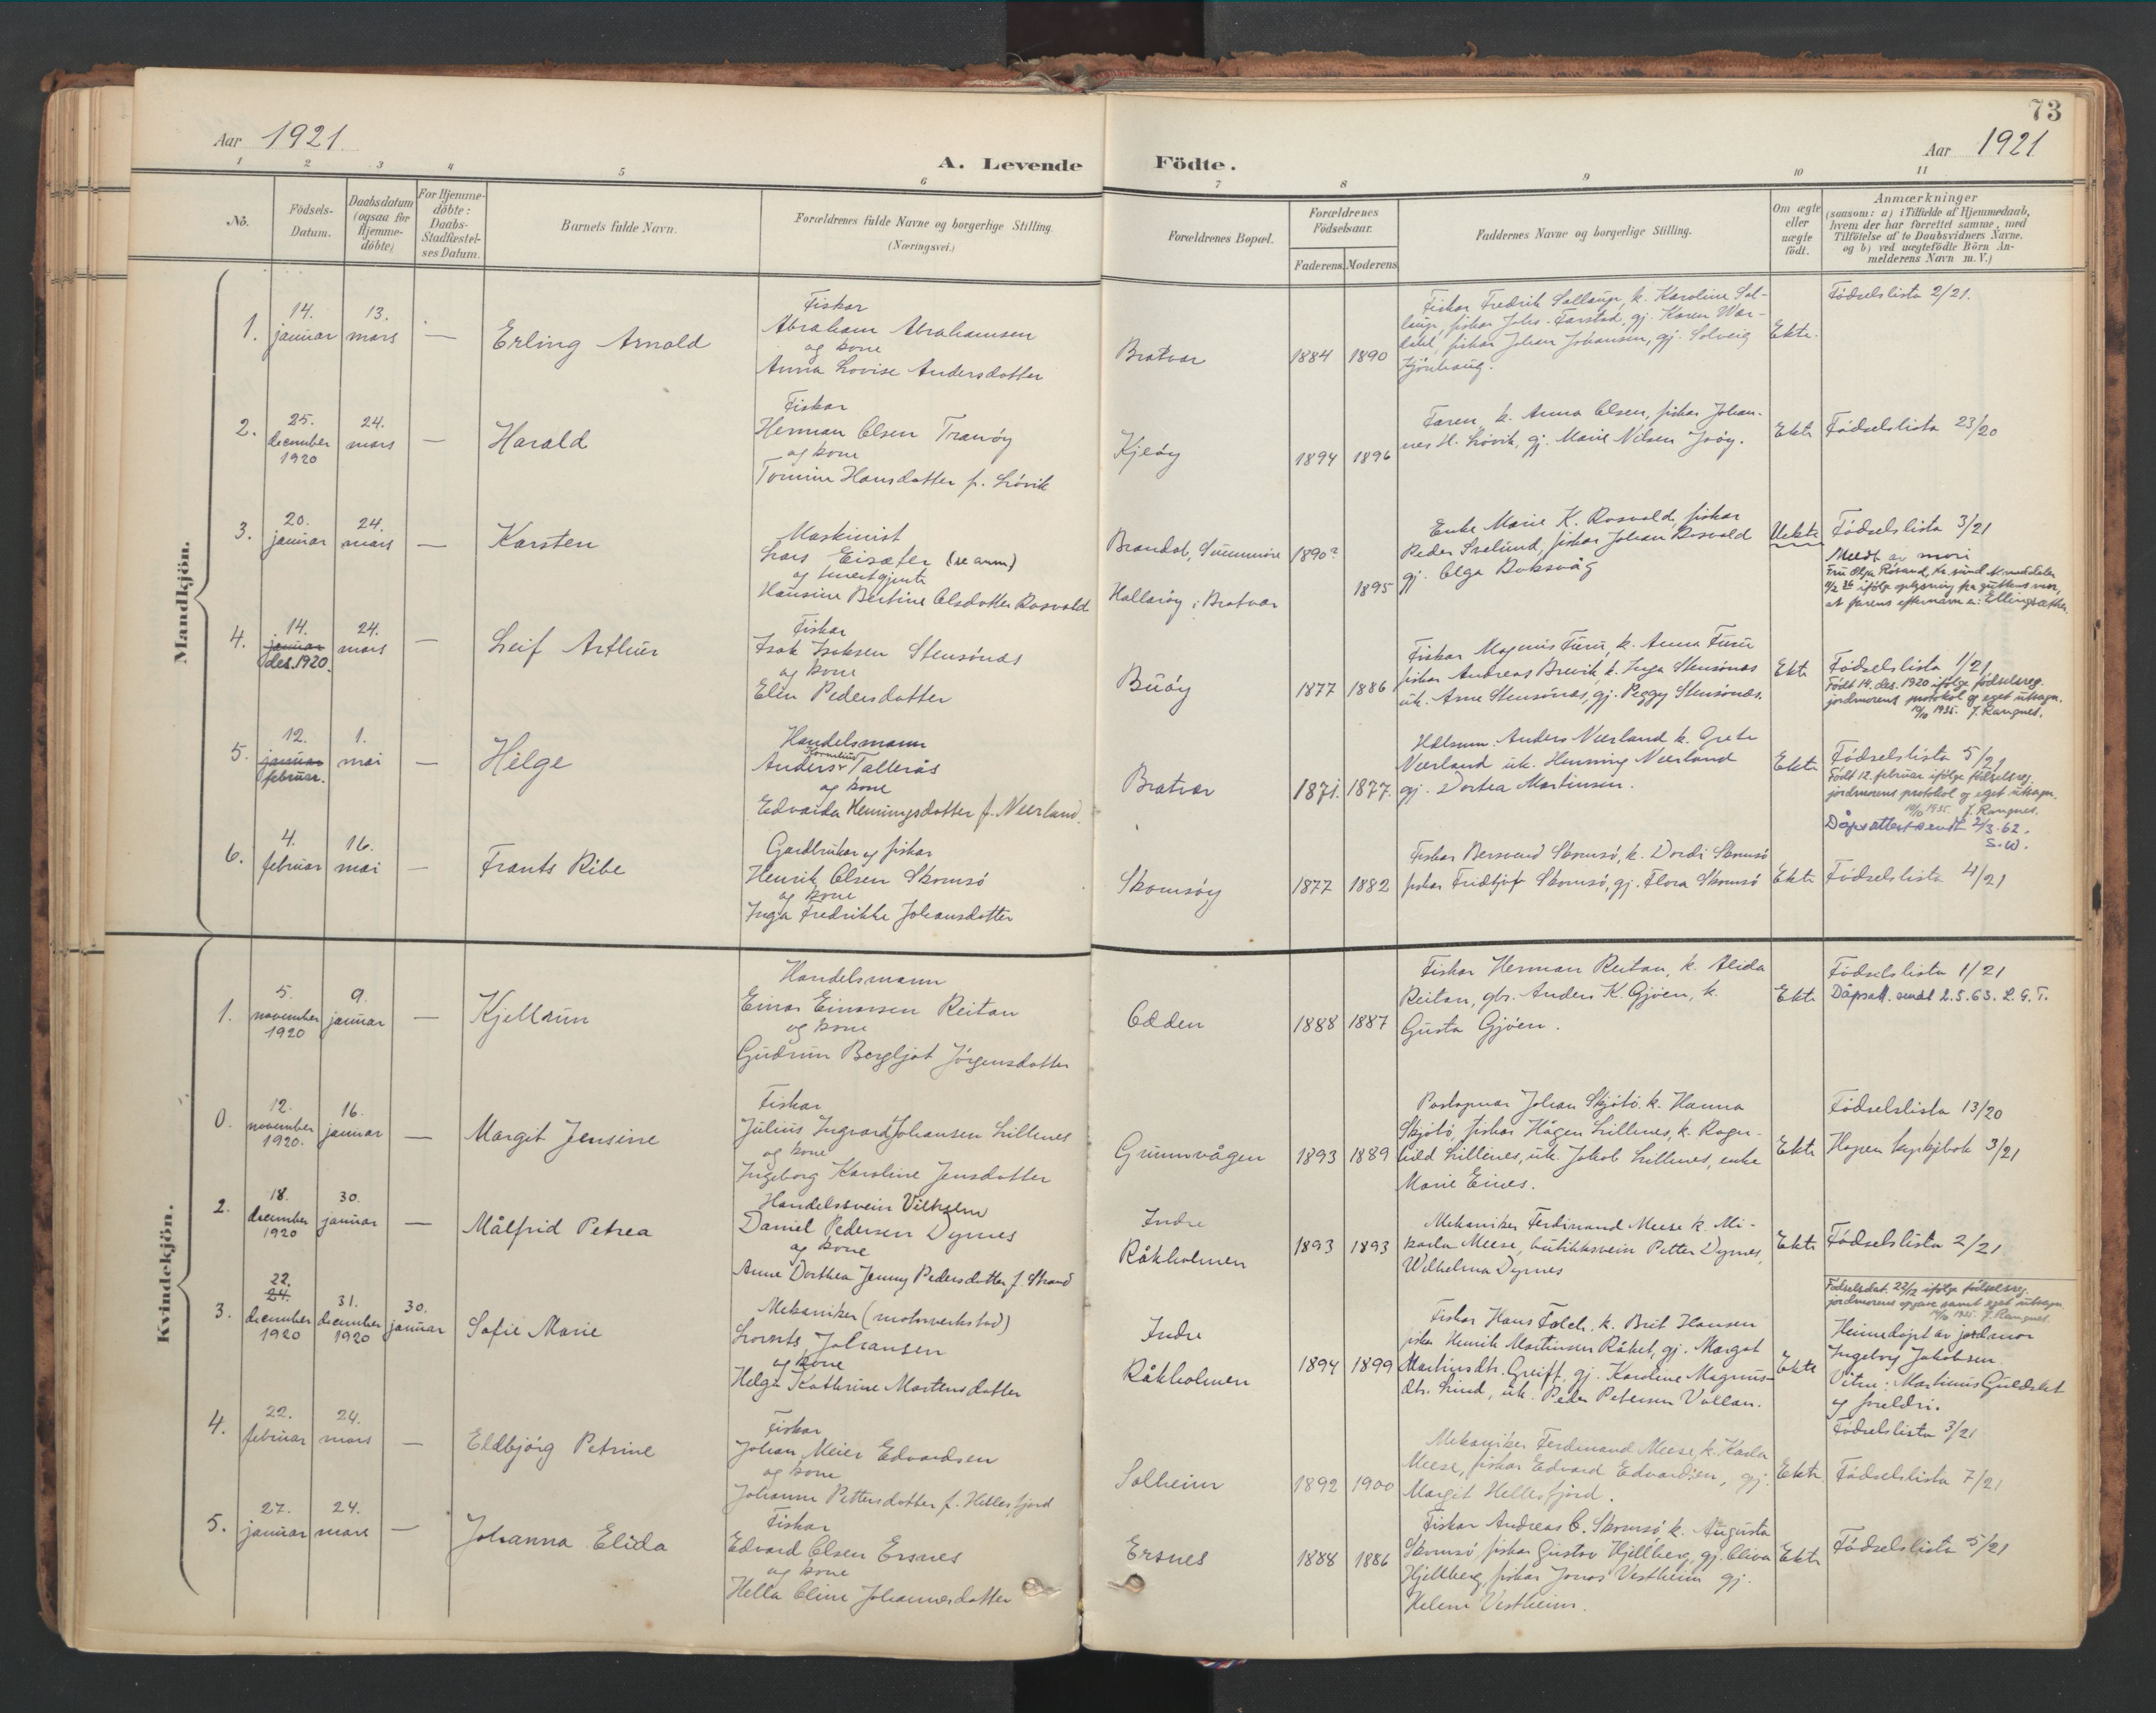 73
Aar 1921.
Aar 1921
A. Levende Födte.
1 2 3 4 5 6 7 8 9 10 11
No.
Födsels-
Datum.
Daabsdatum
(ogsaa for
Hjemme-
döbte)
For Hjemme-
döbte:
Daabs-
Stadfæstel-
ses Datum.
Barnets fulde Navn.
Forældrenes fulde Navne og borgerlige Stilling.
(Næringsvei.)
Forældrenes Bopæl.
Forældrenes
Födselsaar.
Faderens. Moderens.
Faddernes Navne og borgerlige Stilling.
Om ægte
eller
uægte
födt.
Anmærkninger
(saasom: a) i Tilfælde af Hjemmedaab,
hvem der har forrettet samme, med
Tilföielse af to Daabsvidners Navne,
og b) ved uægtefödte Börn An-
melderens Navn m. V.)
Mandkjön.
1.
14.
januar
13.
mars
—
Erling Arnold
Fiskar
Abraham Abrahamsen
og kone
Anna Lovise Andersdotter
Bratvær
1884 1890
Fiskar Fredrik Sollaup, k. Karoline Sol-
laup, fiskar Johs. Farstad, gj. Karen Wær-
dahl, fiskar Johan Johansen, gj. Solveig
Ekte.
Födselslista 2/21.
2.
25.
december
1920
24.
mars
—
Harald
Fiskar
Herman Olsen Tranöy
og kone
Tomine Hansdotter f. Lövik
Kjeöy
1894 1896
Faren, k. Anna Olsen, fiskar Johan-
nes H. Lövik, gj. Marie Nilsen
Ekte
Födselslista 23/20
3.
20.
januar
24.
mars
—
Karsten
Maskinist
Lars Eisæter (se anm)
og
Hansine Bertine Olsdotter Rosvold
Brandal, Sunnmöre
Hallaröy i Bratvær
1890?
1895
Enke Marie K. Rosvold, fiskar
Peder Svalund, fiskar Johan Rosvold
gj. Olga Boksvåg
Uekte
Födselslista 3/21
Meldt av mori
Fru Olga Rösand, Kr.sund N. meddeler
11/2 26 ifölge oplysning fra guttens mor,
at farens efternavn er: Ellingsæther.
4.
14.
januar
des. 1920.
24.
mars
—
Leif Arthur
Fiskar
Isak Isaksen Stensönes
og kone
Elen Pedersdotter
Buöy
1877 1886
Fiskar Magnus Furu, k. Anna Furu
fiskar Andreas Brevik k. Inga Stensönes
uk. Arne Stensönes, gj. Peggy Stensönes.
Ekte
Födselslista 1/21
Födt 14. des. 1920 ifölge födselsreg.
jordmorens protokol og eget utsagn.
10/10 1935. J. Rangnes.
5.
12.
januar
februar.
1.
mai
—
Helge
Handelsmann
Kornelius
Anders Tallerås
og kone
Edvarda Henningsdotter f. Neerland.
Bratvær
1871. 1877.
Hdlsmn. Anders Neerland k. Grete
Neerland uk. Henning Neerland
gj. Dortea Martinsen.
Ekte
Födselslista 5/21
Födt 12. februar ifölge födselsreg.
jordmorens protokol og eget utsagn.
10/10 1935. J. Rangnes.
Dåpsattest sendt 2/3-62.
S.W.
6.
4.
februar
16.
mai
—
Frants Ribe
Gardbrukar og fiskar
Henrik Olsen Skomsö
og kone
Inga Fredrikke Johansdotter
Skomsöy
1877 1882
Fiskar Bersvend Skomsö, k. Dordi Skomsö
fiskar Fridtjof Skomsö, gj. Flora Skomsö
Ekte
Födselslista 4/21
Kvindekjön.
1.
5.
november
1920
9.
januar
—
Kjellrun
Handelsmann
Einar Einarsen Reitan
og kone
Gudrun Bergljot Jörgensdotter
Odden
1888 1887
Fiskar Herman Reitan, k. Alida
Reitan, gbr. Anders K. Gjöen, k.
Gusta Gjöen.
Ekte
Födselslista 1/21
Dåpsatt. sendt 2.5.63. L.G.T.
0.
12.
november
1920.
16.
januar
—
Margit Jensine
Fiskar
Julius Ingvard Johansen Lillenes
og kone
Ingeborg Karoline Jensdotter
Grunnvågen
1893 1889
Postopnar Johan Skjölö. k. Hanna
Skjölö, fiskar Hågen Lillenes, k. Ragn-
hild Lillenes, uk. Jakob Lillenes, enke
Marie Eines.
Ekte
Födselslista 13/20
Hopen kyrkjebok 3/21
2.
18.
december
1920
30.
januar
—
Målfrid Petrea
Handelssvein Vilhelm
Daniel Pedersen Dyrnes
og kone
Anne Dorthea Jenny Pedersdotter f. Strand
Indre
Råkholmen
1893 1893
Mekaniker Ferdinand Meese k. Mi-
karla Meese, butikksvein Petter Dyrnes,
Wilhelma Dyrnes
Ekte
Födselslista 2/21
3.
22.
24.
december
1920
31.
december
1920
30.
januar
Sofie Marie
Mekaniker (motorverkstad)
Lorents Johansen
og kone
Helga Kathrine Mortensdotter
Indre
Råkholmen
1894 1899
Fiskar Hans Folch, k. Brit Hansen
fiskar Henrik Martinsen Råket, gj. Margot
Martinsdtr. Greiff, gj. Karoline Magnus-
dtr. Lind, uk. Peder Petersen Vullan.
Ekte
Födselsdat. 22/12 ifölge födselsreg.
jordmorens opgave samt eget utsagn.
10/10 1935. J. Rangnes.
Heimedöpt av jordmor
Ingeborg Jakobsen.
Vitne: Martinus Guldset
og foreldri.
Födselslista 3/21
4.
22.
februar
24.
mars
—
Eldbjörg Petrine
Fiskar
Johan Meier Edvardsen
og kone
Johanne Pettersdotter f. Hellesfjord
Solheim
1892 1900
Mekaniker Ferdinand Meese, k. Karla
Meese, fiskar Edvard Edvardsen, gj.
Margit Hellesfjord.
Ekte.
Födselslista 7/21
5.
27.
januar
24.
mars
—
Johanna Elida
Fiskar
Edvard Olsen Ersnes
og kone
Hella Oline Johannesdotter
Ersnes
1888 1886
Fiskar Andreas O. Skomsö k. Augusta
Skomsö, fiskar Gustav Hjellberg, gj. Oliva
Hjellberg, fiskar Jonas Vestheim gj.
Helene Vestheim.
Ekte
Födselslista 5/21